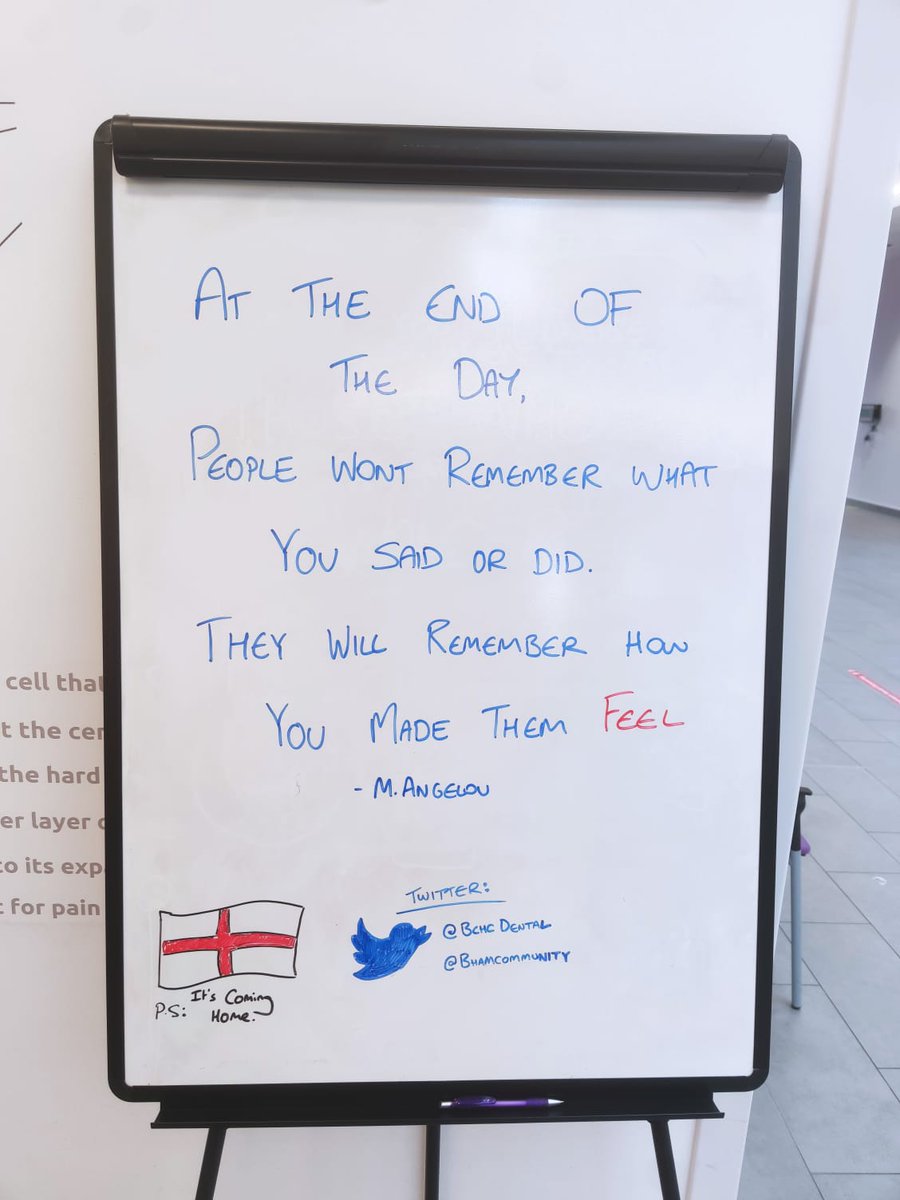 AT THE END OF
THE DAY,
PEOPLE WONT REMEMBER WHAT
YOU SAID OR DID.
THEY WILL REMEMBER HOW
YOU MADE THEM FEEL
- M. ANGELOU
TWITTER:
@BCHC DENTAL
@BHAMCOMMUNITY
P.S: It's Coming
Home.
cell that
the cer
the hard
er layer
to its exp
for pain